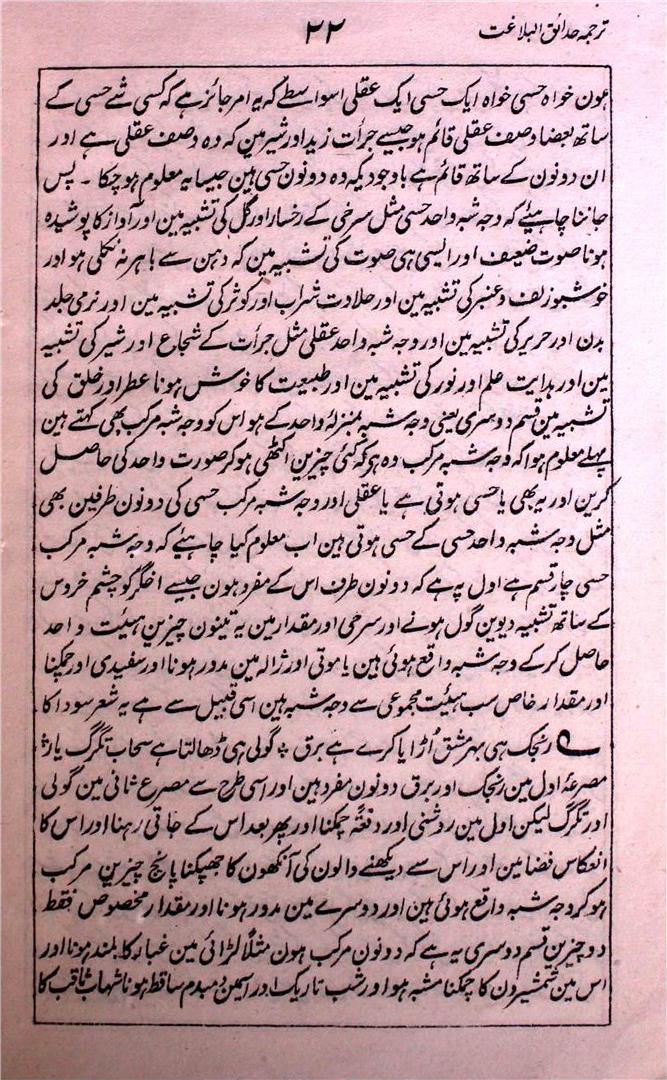 ترجمہ حدائق البلاغت
۲۲
ہون خواہ حسی خواہ ایک حسی ایک عقلی اسواسطے کہ یہ امر جائز ہے کہ کسی شے حسی کے
ساتھ بعضا وصف عقلی قائم ہو جیسے جرأت زید اور شیر مین کہ وہ وصف عقلی ہے اور
ان دونون کے ساتھ قائم ہے باوجودیکہ وہ دونون حسی ہین جیسا یہ معلوم ہو چکا ۔ پس
جاننا چاہیئے کہ وجہ شبہ واحد حسی مثل سرخی کے رخسار اور گل کی تشبیہ مین اور آواز کا پوشیدہ
ہونا صوت ضعیف اور ایسی ہی صوت کی تشبیہ مین کہ دہن سے باہر نہ نکلی ہو اور
خوشبو زلف و عنبر کی تشبیہ مین اور حلاوت شراب اور کوثر کی تشبیہ مین اور نرمی جلد
بدن اور حریر کی تشبیہ مین اور وجہ شبہ واحد عقلی مثل جرأت کے شجاع اور شیر کی تشبیہ
مین اور ہدایت علم اور نور کی تشبیہ مین اور طبیعت کا خوش ہونا عطر اور خلق کی
تشبیہ مین قسم دوسری یعنی وجہ شبہ بمنزلۂ واحد کے ہو اس کو وجہ شبہ مرکب بھی کہتے ہین
پہلے معلوم ہوا کہ وجہ شبہ مرکب وہ ہو کہ کئی چیزین اکٹھی ہو کر صورت واحد کی حاصل
کرین اور یہ بھی یا حسی ہوتی ہے یا عقلی اور وجہ شبہ مرکب حسی کی دونون طرفین بھی
مثل وجہ شبہ واحد حسی کے حسی ہوتی ہین اب معلوم کیا چاہیئے کہ وجہ شبہ مرکب
حسی چار قسم ہے اول یہ ہے کہ دونون طرف اس کے مفرد ہون جیسے اخگر کو چشم خروس
کے ساتھ تشبیہ دیوین گول ہونے اور سرخی اور مقدار مین یہ تینون چیزین ہیئت واحد
حاصل کر کے وجہ شبہ واقع ہوئی ہین یا موتی اور ژالہ مین مدور ہونا اور سفیدی اور چمکنا
اور مقدار خاص سب ہیئت مجموعی سے وجہ شبہ ہین اسی قبیل سے ہے یہ شعر سودا کا
رنجک ہی بہر مشق اڑایا کرے ہے برق ؛ گولی ہی ڈھالتا ہے سحاب تگرگ بار ؞
مصرعۂ اول مین رنجک اور برق دونون مفرد ہین اور اسی طرح سے مصرع ثانی مین گولی
اور تگرگ لیکن اول مین روشنی اور دفعۃً چمکنا اور پھر بعد اس کے جاتی رہنا اور اس کا
انعکاس فضا مین اور اس سے دیکھنے والون کی آنکھون کا جھپکنا پانچ چیزین مرکب
ہو کر وجہ شبہ واقع ہوئی ہین اور دوسرے مین مدور ہونا اور مقدار مخصوص فقط
دو چیزین قسم دوسری یہ ہے کہ دونون مرکب ہون مثلاً لڑائی مین غبار کا بلند ہونا اور
اس مین شمشیرون کا چمکنا مشبہ ہو اور شب تاریک اور اسمین دمبدم ساقط ہونا شہاب ثاقب کا